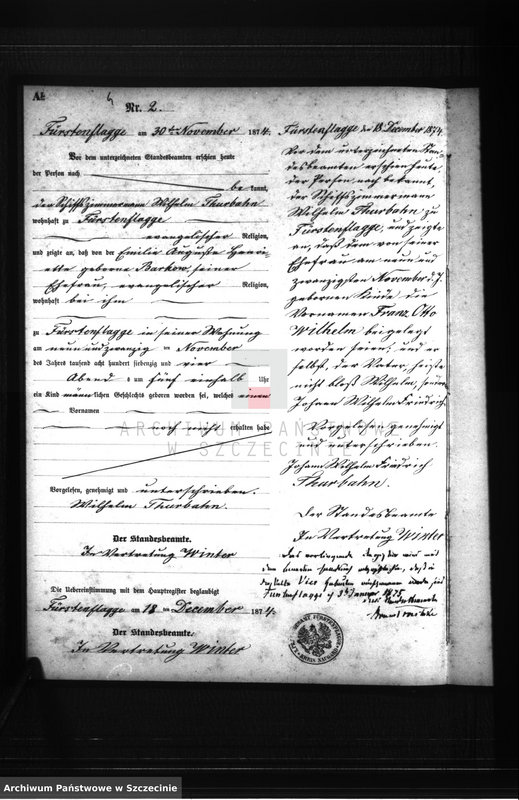 Nr. 2.
Fürstenflagge am 30ten November 1874.
Vor dem unterzeichneten Standesbeamten erschien heute
der Person nach
bekannt,
der Schiffszimmermann Wilhelm Thurbahn
wohnhaft zu Fürstenflagge
evangelischer Religion,
und zeigte an, daß von der Emilie Auguste Henri-
ette geborne Barkow, seiner
Ehefrau, evangelischer Religion,
wohnhaft bei ihm
zu Fürstenflagge in seiner Wohnung
am neun und zwanzig ten November
des Jahres tausend acht hundert siebenzig und vier
Abend s um fünf einhalb Uhr
ein Kind männlichen Geschlechts geboren worden sei, welches einen
Vornamen
noch nicht erhalten habe
Vorgelesen, genehmigt und unterschrieben.
Wilhelm Thurbahn.
Der Standesbeamte.
In Vertretung Winter
Die Uebereinstimmung mit dem Hauptregister beglaubigt
Fürstenflagge am 18 ten December 1874.
Der Standesbeamte.
In Vertretung Winter
Fürstenflagge den 18 December 1874.
Vor dem unterzeichneten Stan-
desbeamten erschien heute,
der Person nach bekannt,
der Schiffszimmermann
Wilhelm Thurbahn zu
Fürstenflagge, und zeigte
an, daß dem von seiner
Ehefrau am neun und
zwanzigsten November d. J.
gebornen Kinde die
Vornamen Franz Otto
Wilhelm beigelegt
worden seien; und er
selbst, der Vater, heiße
nicht bloß Wilhelm, sondern
Johann Wilhelm Friedrich.
Vorgelesen genehmigt
und unterschrieben.
Johann Wilhelm Friedrich
Thurbahn.
Der Standesbeamte
In Vertretung Winter
Fürstenflagge d 3t Januar 1875.
ARCHIWUM PAŃSTWOWE
W SZCZECINIE
Archiwum Państwowe w Szczecinie